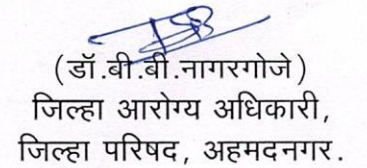 (डॉ.बी.बी.नागरगोजे)
जिल्हा आरोग्य अधिकारी,
जिल्हा परिषद, अहमदनगर.